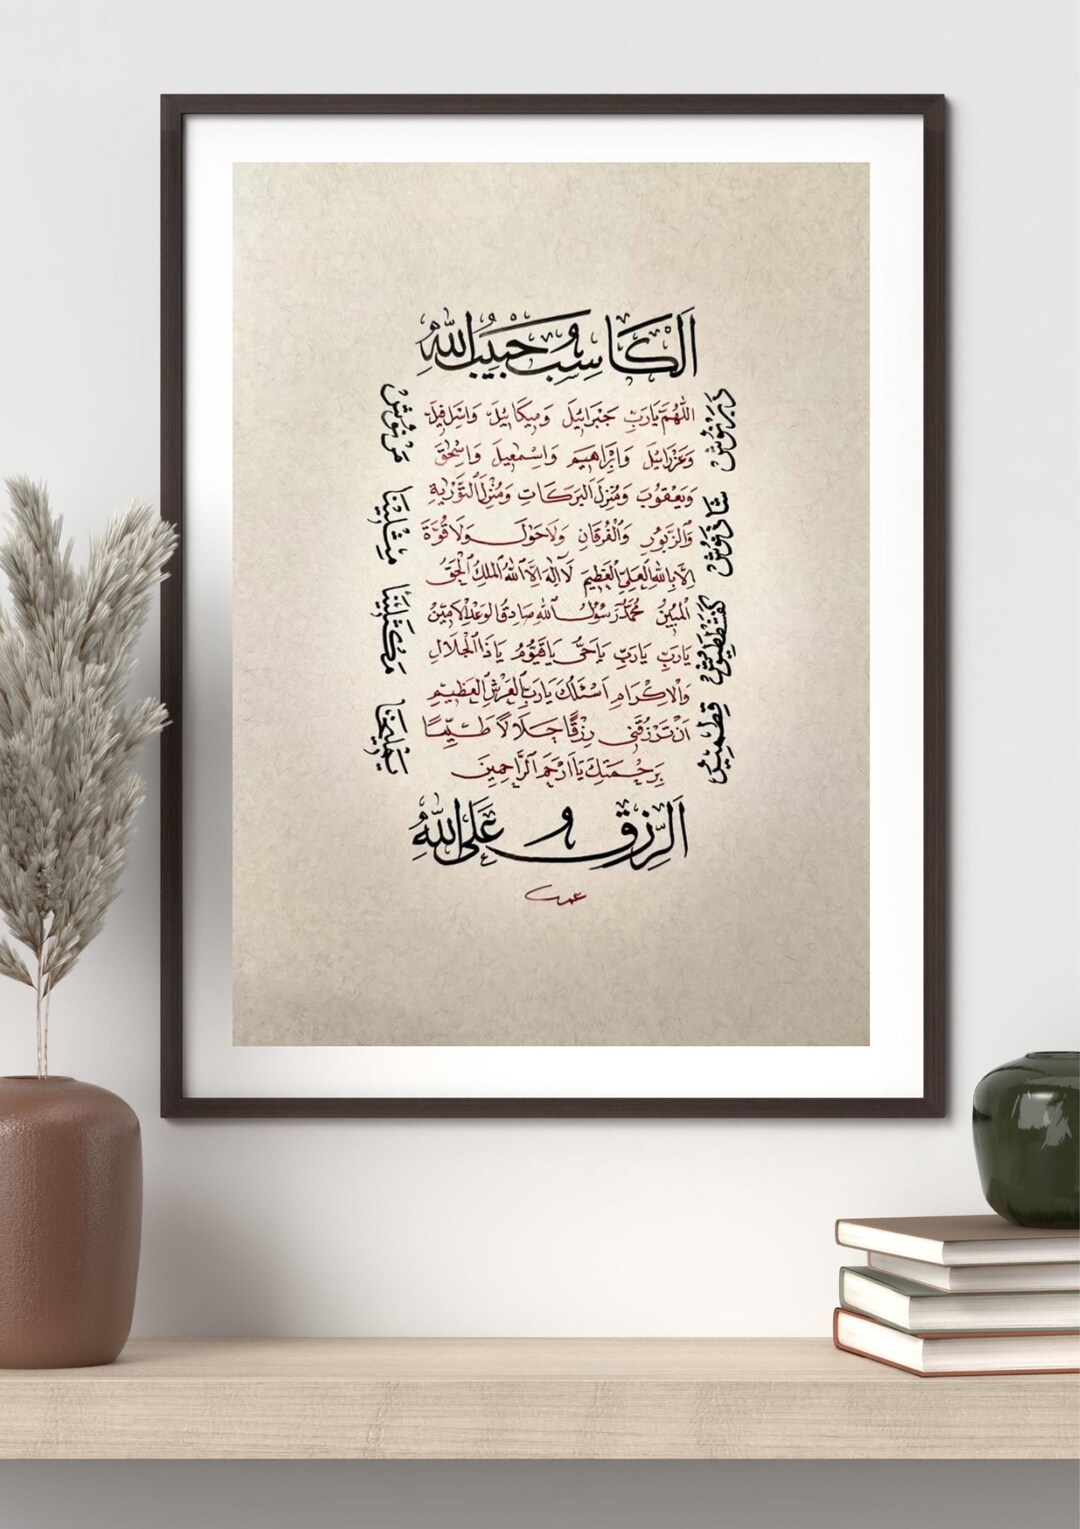 اَلْكَاسِبُ حَبِيبُ اللهِ
اَللّٰهُمَّ يَارَبِّ جَبْرَائِيلَ وَمِيكَائِيلَ وَاِسْرَافِيلَ
وَعَزْرَائِيلَ وَاِبْرَاهِيمَ وَاِسْمٰعِيلَ وَاِسْحٰقَ
وَيَعْقُوبَ وَمُنْزِلَ الْبَرَكَاتِ وَمُنْزِلَ التَّوْرٰيةِ
وَالزَّبُورِ وَالْفُرْقَانِ وَلَاحَوْلَ وَلَاقُوَّةَ
اِلَّا بِاللهِ الْعَلِيِّ الْعَظِيمِ لَا اِلٰهَ اِلَّا اللهُ الْمَلِكُ الْحَقُّ
الْمُبِينُ مُحَمَّدٌ رَسُولُ اللهِ صَادِقُ الْوَعْدِ الْاَمِينُ
يَارَبِّ يَارَبِّ يَاحَىُّ يَاقَيُّومُ يَاذَا الْجَلَالِ
وَالْاِكْرَامِ اَسْئَلُكَ يَارَبَّ الْعَرْشِ الْعَظِيمِ
اَنْ تَرْزُقَنِى رِزْقًا حَلَالًا طَيِّبًا
بِرَحْمَتِكَ يَا اَرْحَمَ الرَّاحِمِينَ
اَلرِّزْقُ عَلَى اللهِ
دَبَرْنُوشْ
شَاذَنُوشْ
كَفَشْطَطَيُوشْ
قِطْمِيرْ
مَرْنُوشْ
مِثْلِينَا
مَكْثَلِينَا
يَمْلِيخَا